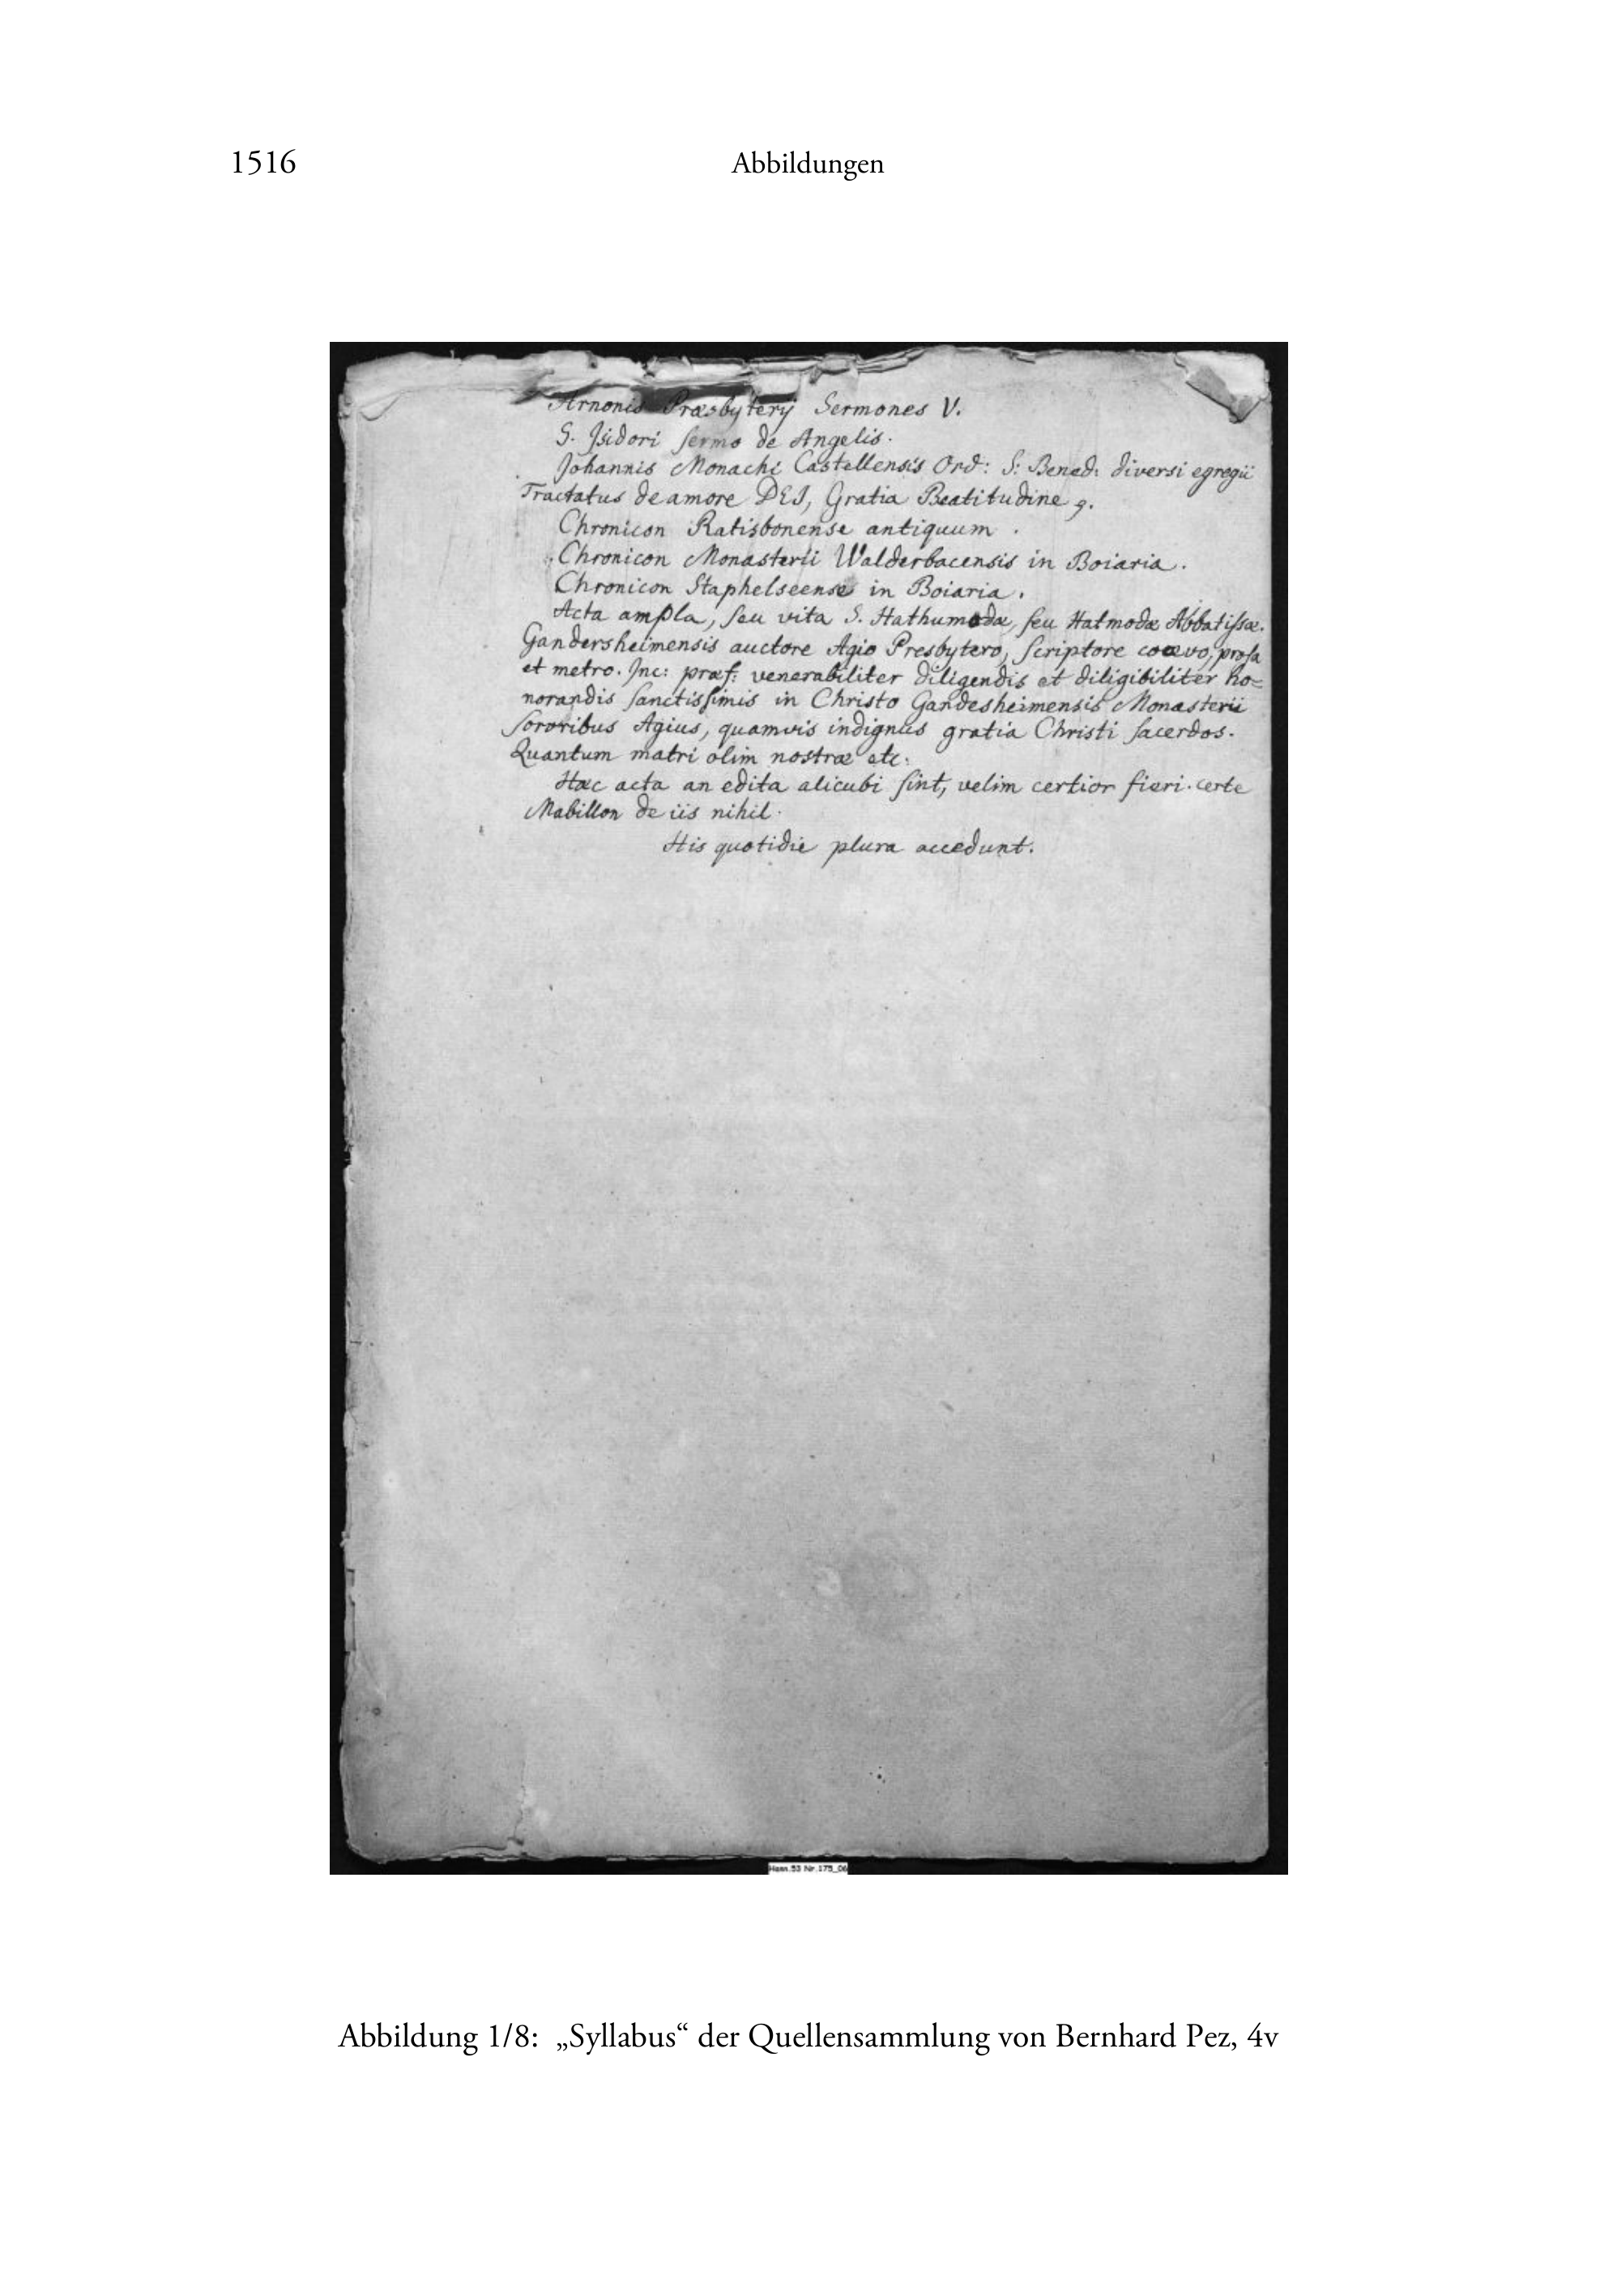 1516
Abbildungen
Arnonis Præsbyterÿ Sermones V.
S. Isidori sermo de Angelis.
Johannis Monachi Castellensis Ord: S: Bened: diversi egregii
Tractatus de amore DEI, Gratia Beatitudine
Chronicon Ratisbonense antiquum.
Chronicon Monasterii Walderbacensis in Boiaria.
Chronicon Staphelseense in Boiaria.
Acta ampla, seu vita S. Hathumodæ, seu Hatmodæ Abbatissæ.
Gandersheimensis auctore Agio Presbytero, scriptore coævo, prosa
et metro. Inc: præf: venerabiliter diligendis et diligibiliter ho=
norandis sanctissimis in Christo Gandesheimensis Monasterii
sororibus Agius, quamvis indignus gratia Christi sacerdos.
Quantum matri olim nostræ etc.
Hæc acta an edita alicubi sint, velim certior fieri. certe
Mabillon de iis nihil.
His quotidie plura accedunt.
Hann.93 Nr.175_06
Abbildung 1/8: „Syllabus“ der Quellensammlung von Bernhard Pez, 4v